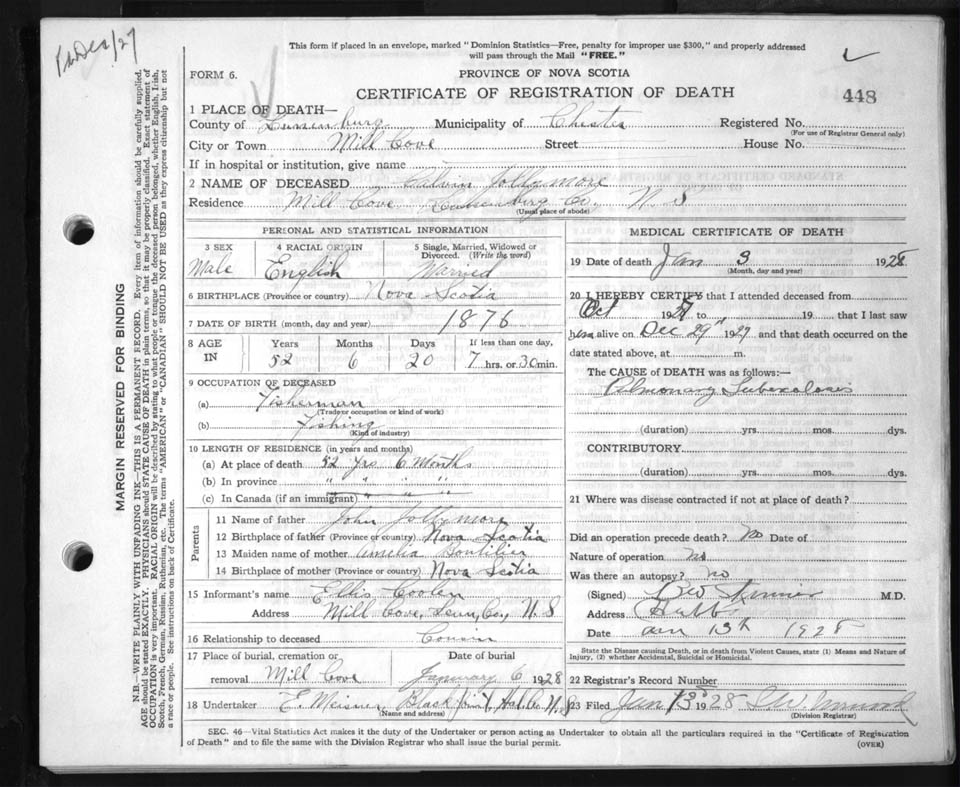 Dec/27
This form if placed in an envelope, marked "Dominion Statistics—Free, penalty for improper use $300," and properly addressed
will pass through the Mail "FREE."
FORM 6.
PROVINCE OF NOVA SCOTIA
CERTIFICATE OF REGISTRATION OF DEATH
448
1 PLACE OF DEATH—
County of Lunenburg Municipality of Chester Registered No.
(For use of Registrar General only)
City or Town Mill Cove Street House No.
If in hospital or institution, give name
2 NAME OF DECEASED Jollymore
Residence Mill Cove Lunenburg Co. N. S
(Usual place of abode)
PERSONAL AND STATISTICAL INFORMATION
3 SEX 4 RACIAL ORIGIN 5 Single, Married, Widowed or Divorced. (Write the word)
Male English Married
6 BIRTHPLACE (Province or country) Nova Scotia
7 DATE OF BIRTH (month, day and year) 1876
8 AGE IN Years Months Days If less than one day,
52 6 20 7 hrs. or 30 min.
9 OCCUPATION OF DECEASED
(a) Fisherman
(Trade or occupation or kind of work)
(b) Fishing
(Kind of industry)
10 LENGTH OF RESIDENCE (in years and months)
(a) At place of death 52 yrs 6 Months
(b) In province " " " "
(c) In Canada (if an immigrant) " " " "
Parents
11 Name of father John Jollymore
12 Birthplace of father (Province or country) Nova Scotia
13 Maiden name of mother Amelia Boutilier
14 Birthplace of mother (Province or country) Nova Scotia
15 Informant's name Ellis Cooler
Address Mill Cove, Lun, Co, N. S
16 Relationship to deceased Cousin
17 Place of burial, cremation or removal Mill Cove
Date of burial January 6 1928
18 Undertaker E. Meisner Black Point, Hal. Co. N. S
(Name and address)
MEDICAL CERTIFICATE OF DEATH
19 Date of death Jan 3 1928
(Month, day and year)
20 I HEREBY CERTIFY that I attended deceased from
Oct 1927 to 19 that I last saw
him alive on Dec 29th 1927 and that death occurred on the
date stated above, at m.
The CAUSE of DEATH was as follows:—
Pulmonary Tuberculosis
(duration) yrs. mos. dys.
CONTRIBUTORY.
(duration) yrs. mos. dys.
21 Where was disease contracted if not at place of death?
Did an operation precede death? No Date of
Nature of operation no
Was there an autopsy? no
(Signed) M.D.
Address Hubbs
Date Jan 13th 1928
State the Disease causing Death, or in death from Violent Causes, state (1) Means and Nature of
Injury, (2) whether Accidental, Suicidal or Homicidal.
22 Registrar's Record Number
23 Filed Jan 13 1928
(Division Registrar)
SEC. 46—Vital Statistics Act makes it the duty of the Undertaker or person acting as Undertaker to obtain all the particulars required in the "Certificate of Registration
of Death" and to file the same with the Division Registrar who shall issue the burial permit.
(OVER)
MARGIN RESERVED FOR BINDING
N.B.—WRITE PLAINLY WITH UNFADING INK—THIS IS A PERMANENT RECORD. Every item of information should be carefully supplied.
AGE should be stated EXACTLY. PHYSICIANS should STATE CAUSE OF DEATH in plain terms, so that it may be properly classified. Exact statement of
OCCUPATION is very important. RACIAL ORIGIN will be described by stating to what people or tongue the deceased person belonged, whether English, Irish,
Scotch, French, German, Russian, Ruthenian, etc. The terms "AMERICAN" or "CANADIAN" SHOULD NOT BE USED as they express citizenship but not
a race or people. See instructions on back of Certificate.